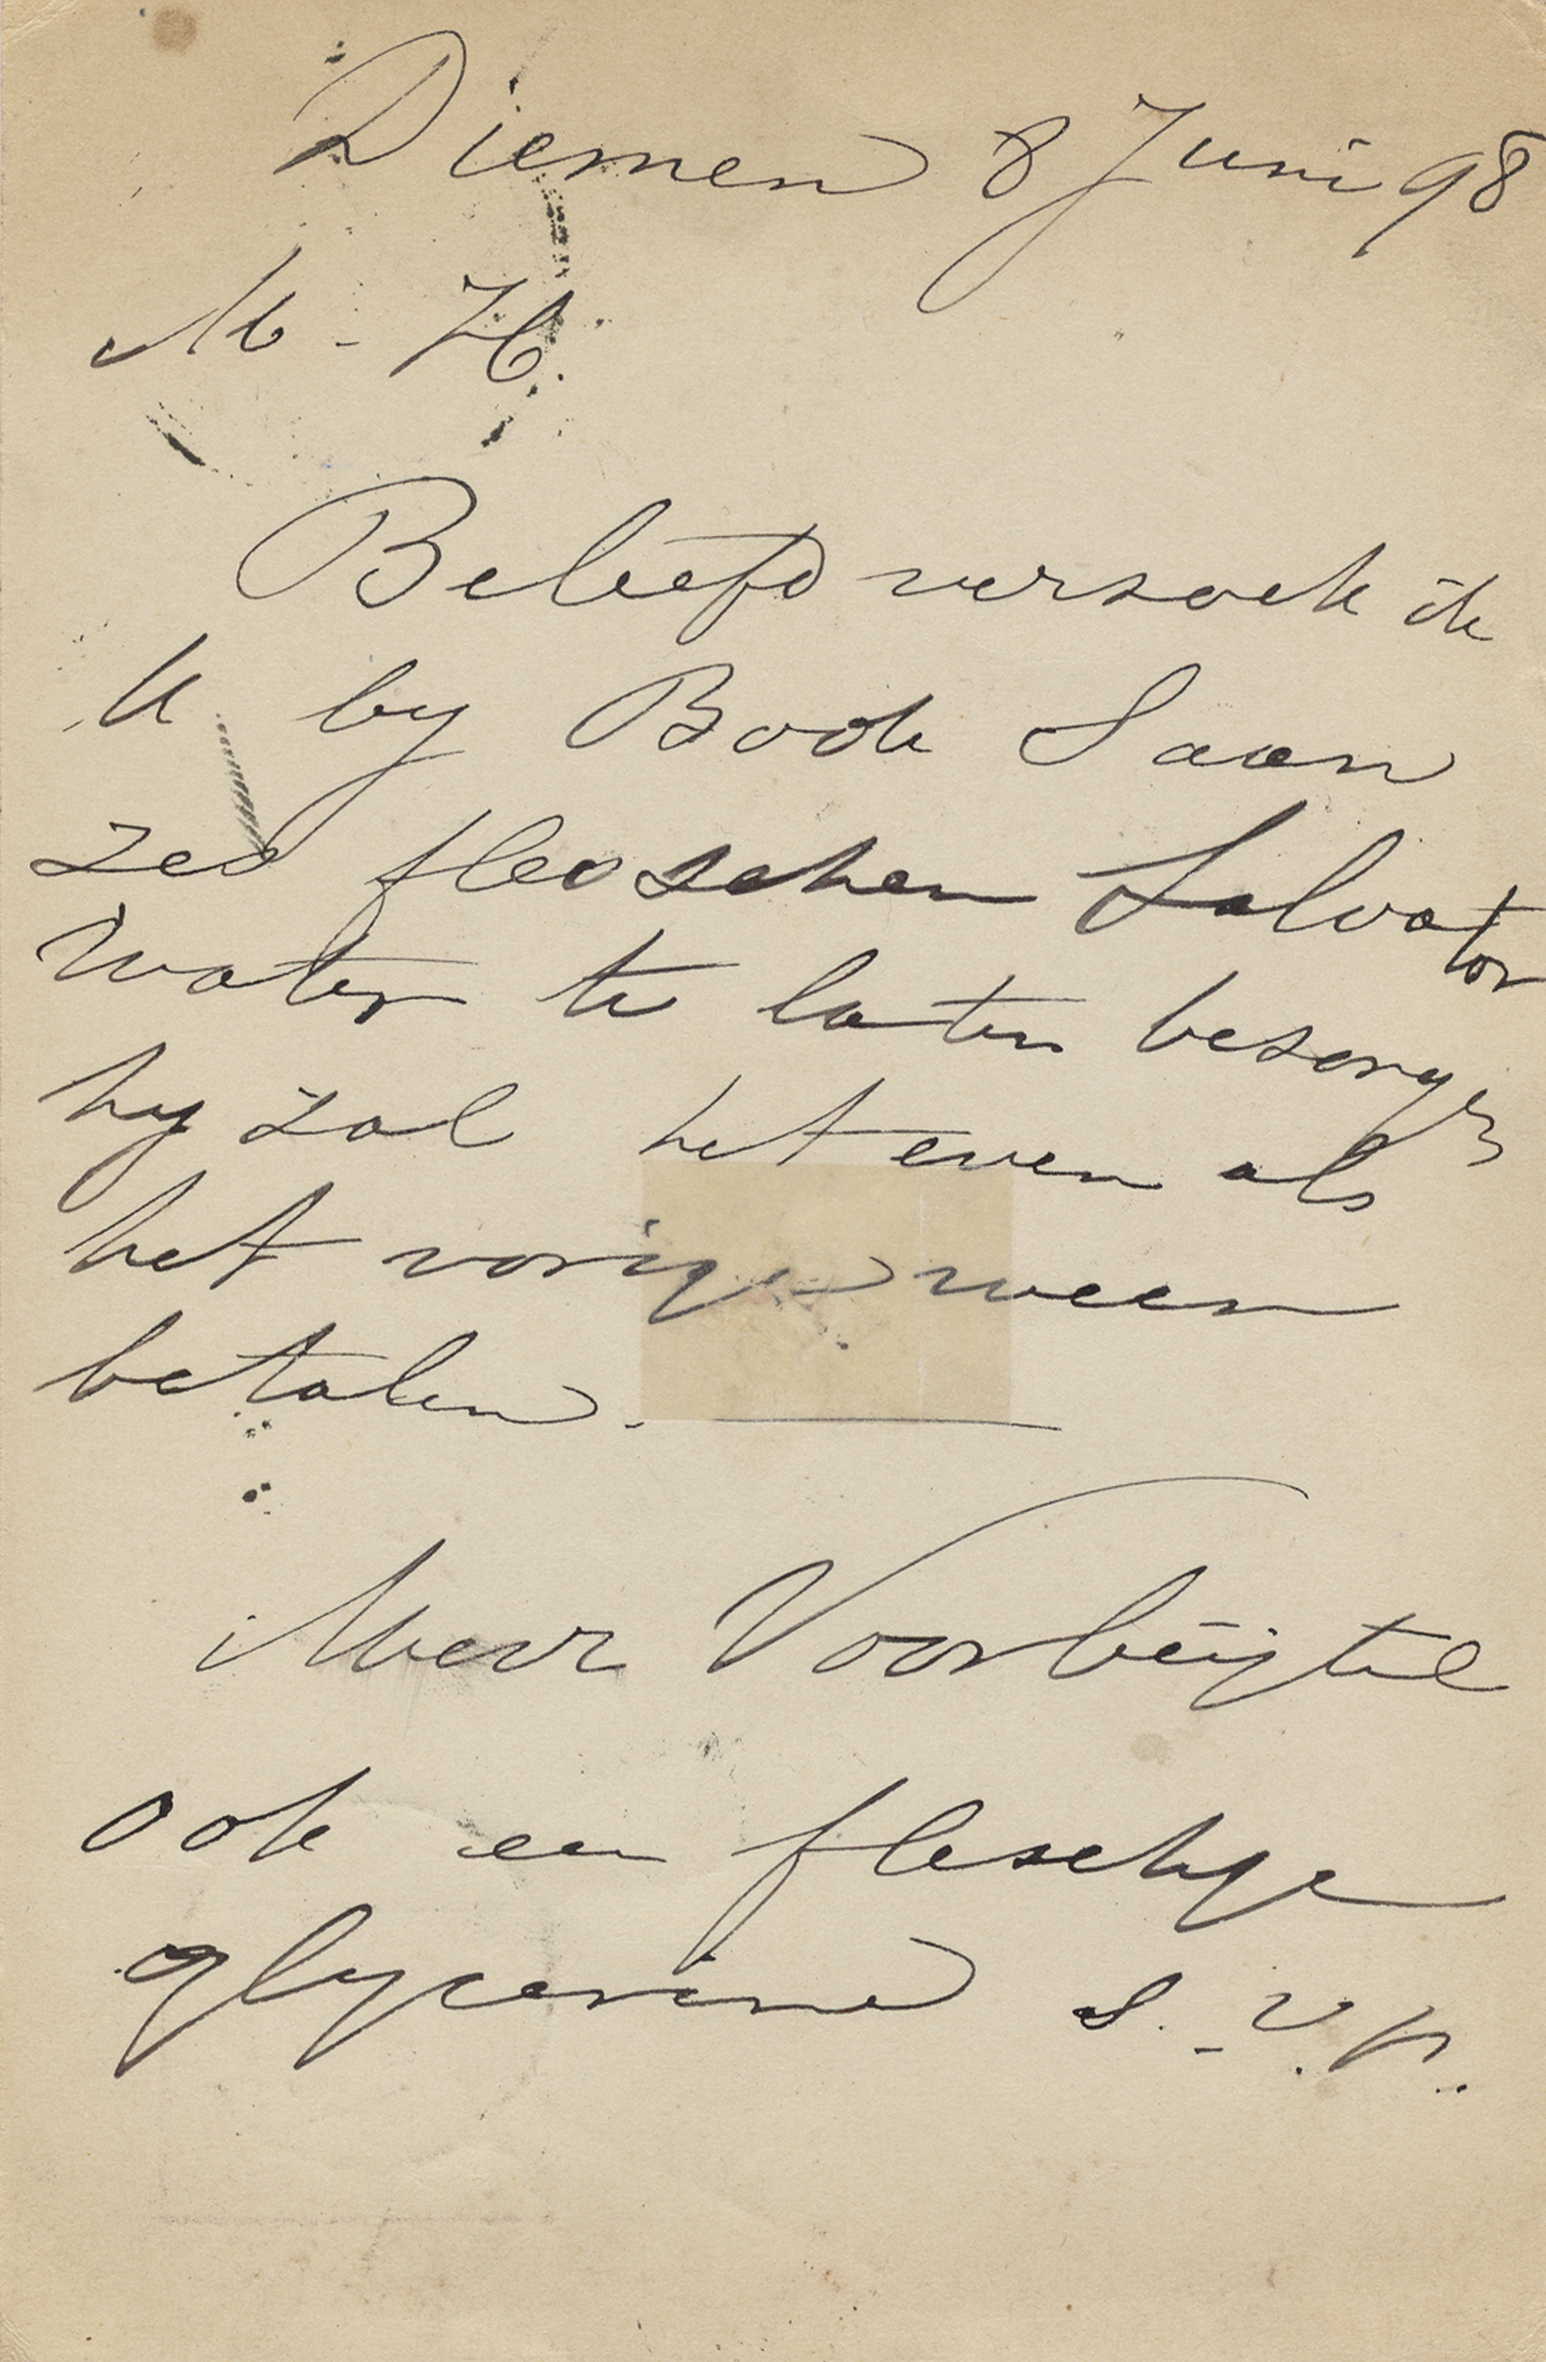 Diemen 8 Juni 98
M. H.
Beleefd verzoek ik
U by Book Saan
zes flesschen Salvator
water te laten bezorgen
hy zal het even als
het vorige weer
betalen.
Mevr Voorbeijtel
ook een fleschje
glycerine s. v. p.